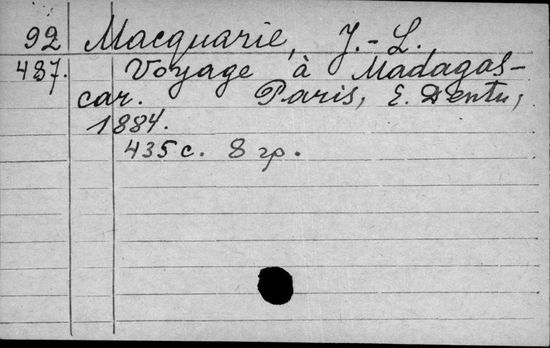 92 Macquarie, J.-L.
437. Voyage à Madagas-
car. Paris, E. Dentu,
1884.
435 с. 8 гр.